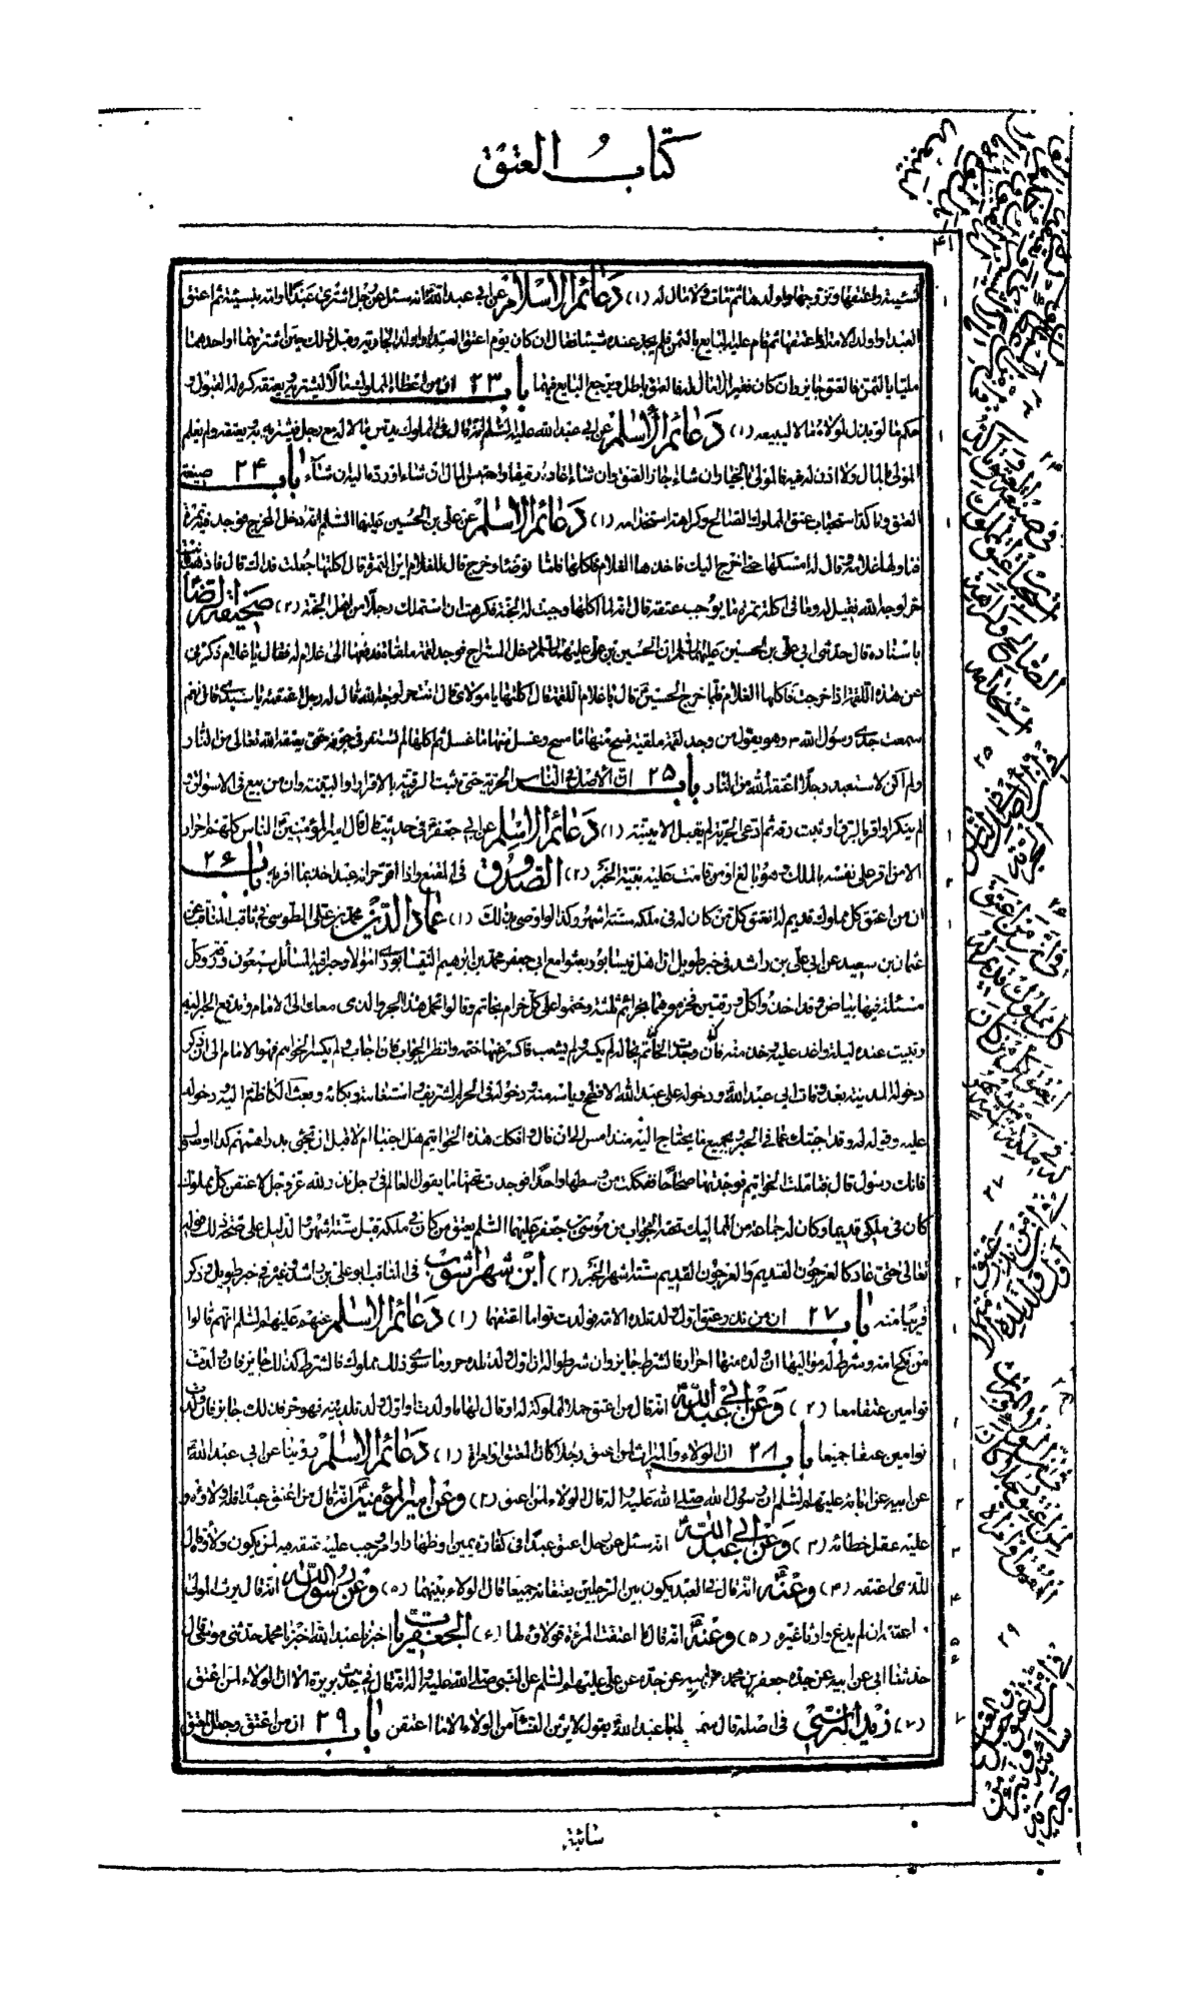 كتاب العتق
۴۱
نسيئة واعتقها وتزوجها واولدها ثم مات ولا مال له (۱) دعائم الاسلام عن ابي عبد الله انه سئل عن رجل اشترى عبدا او امة بنسيئة ثم اعتق
العبد او اولد الامة او اعتقها ثم قام عليه البايع بالثمن فلم يجد عنده شيئا فقال ان كان يوم اعتق العبد او اولد الجارية وقبل ذلك حين اشتريهما او احدهما
مليا بالثمن فالعتق جايز وان كان فقيرا لا مال له فالعتق باطل ويرجع البايع فيهما باب ۲۳ ان من اعطاه المملوك مالا ليشتريه ويعتقه كره له القبول و
حكم ما لو بذل لمولاه مالا ليبيعه (۱) دعائم الاسلام عن ابي عبد الله عليه السلم انه قال في المملوك يدس مالا له مع رجل فيشتريه به ثم يعتقه ولم يعلم
المولى بالمال ولا اذن له فيه فالمولى بالخيار ان شاء اجاز العتق وان شاء اعاده رقيقا واحتبس المال ان شاء او رده اليه ان شاء باب ۲۴ صيغة
العتق وتاكد استحباب عتق المملوك الصالح وكراهة استخدامه (۱) دعائم الاسلام عن علي بن الحسين عليهما السلم انه دخل المخرج فوجد فيه تمرة
فناولها غلامه وقال له امسكها حتى اخرج اليك فاخذها الغلام فاكلها فلما توضأ وخرج قال للغلام اين التمرة قال اكلتها جعلت فداك قال فاذهب فانت
حر لوجه الله فقيل له وما في اكلة تمرة ما يوجب عتقه قال انه لما اكلها وجبت له الجنة فكرهت ان استملك رجلا من اهل الجنة (۲) صحيفة الرضا
باسناده قال حدثني ابي علي بن الحسين عليهما السلم ان الحسين بن علي عليهما السلم دخل المستراح فوجد لقمة ملقاة فدفعها الى غلام له فقال يا غلام ذكرني
عن هذه اللقمة اذا خرجت فاكلها الغلام فلما خرج الحسين قال يا غلام اللقمة قال اكلتها يا مولاي قال انت حر لوجه الله قال له رجل اعتقته يا سيدي قال نعم
سمعت جدي رسول الله وهو يقول من وجد لقمة ملقية فمسح منها ما مسح وغسل منها ما غسل ثم اكلها لم تستقر في جوفه حتى يعتقه الله تعالى من النار
ولم اكن لاستعبد رجلا اعتقه الله من النار باب ۲۵ ان الاصل في الناس الحرية حتى تثبت الرقية بالاقرار او البينة وان من بيع في الاسواق و
لم ينكر او اقر بالرق او ثبت رقه ثم ادعى الحرية لم يقبل الا ببينة (۱) دعائم الاسلام عن ابي جعفر في حديث قال قال امير المؤمنين الناس كلهم احرار
الا من اقر على نفسه بالملك وهو بالغ او من قامت عليه بينة الخبر (۲) الصدوق في المقنع واذا اقر حر انه عبد اخذ بما اقر به باب ۲۶
ان من اعتق كل مملوك قديم له انعتق كل من كان له في ملكه ستة اشهر وكذا لو اوصى بذلك (۱) عماد الدين محمد بن علي الطوسي في ثاقب المناقب عن
عثمان بن سعيد عن ابي علي بن راشد في خبر طويل ان اهل نيسابور بعثوا مع ابي جعفر محمد بن ابرهيم النيسابوري اموالا وجزء فيه المسائل سبعون ورقة وكل
مسئلة فيها بياض وقد اخذوا كل ورقتين فحزموهما بحزائم ثلثة وختموا على كل حزام بخاتم وقالوا تحمل هذا الجزء الذي معك الى الامام وتدفع الجزء اليه
وتبيت عنده ليلة واغد عليه وخذه منه فان وجدت الخاتم بحاله لم يكسر ولم يشعب فاكسر منها ختمه وانظر الجواب فان اجاب ولم يكسر الخواتيم فهو الامام الى ان ذكر
دخوله المدينة بعد وفات ابي عبد الله ودخوله على عبد الله الافطح وياسه منه ودخوله في الحرم الشريف واستغاثته وبكائه وبعث الكاظم اليه ودخوله
عليه وقوله له وقد اجبتك عما في الجزء وبجميع ما يحتاج اليه منذ امس الى ان قال وافكك هذه الخواتيم هل اجبنا ام لا قبل ان تجئ بدراهمهم كما اوصوك
فانك رسول قال فتاملت الخواتيم فوجدتها صحاحا ففككت من وسطها واحدا فوجدت تحتها ما يقول العالم في رجل نذر لله عز وجل لاعتقن كل مملوك
كان في ملكي قديما وكان له جماعة من المماليك تحته الجواب من موسى بن جعفر عليهما السلم يعتق من كان في ملكه قبل ستة اشهر والدليل على صحة ذلك قوله
تعالى حتى عاد كالعرجون القديم والعرجون القديم ستة اشهر الخبر (۲) ابن شهر اشوب في المناقب ابو علي بن راشد وغيره في خبر طويل وذكر
قريبا منه باب ۲۷ ان من نذر عتق اول ولد تلده الامة فولدت توأما اعتقهما (۱) دعائم الاسلام عنهم عليهم السلم انهم قالوا
من نكح امة وشرط له مواليها ان ولده منها احرار فالشرط جايز وان شرطوا له ان اول ولد تلده حر وما سوى ذلك مملوك فالشرط كذلك جايز فان ولدت
توامين عتقا معا (۲) وعن ابي عبد الله انه قال من اعتق حمل المملوكة له او قال لها ما ولدت او اول ولد تلدينه فهو حر فذلك جايز فان ولدت
توامين عتقا جميعا باب ۲۸ ان الولاء والميراث لمن اعتق رجلا كان المعتق او امراة (۱) دعائم الاسلام روينا عن ابي عبد الله
عن ابيه عن ابائه عليهم السلم ان رسول الله صلى الله عليه واله قال الولاء لمن اعتق (۲) وعن امير المؤمنين انه قال من اعتق عبدا فله ولاؤه و
عليه عقل خطائه (۳) وعن ابي عبد الله انه سئل عن رجل اعتق عبدا في كفارة يمين او ظهار او امر وجب عليه عتقه فيه لمن يكون ولاؤه قال
للذي اعتقه (۴) وعنه انه قال في العبد يكون بين الرجلين يعتقانه جميعا قال الولاء بينهما (۵) وعن رسول الله انه قال يرث المولى
اعتقه ان لم يدع وارثا غيره (۵) وعنه انه قال اذا اعتقت المرءة فولاؤه لها (۶) الجعفريات اخبرنا عبد الله اخبرنا محمد حدثني موسى قال
حدثنا ابي عن ابيه عن جده جعفر بن محمد عن ابيه عن جده عن علي عليهم السلم عن النبي صلى الله عليه واله انه قال في حديث بريرة الا ان الولاء لمن اعتق
(۷) زيد النرسي في اصله قال سمعت ابا عبد الله يقول لا يرث النساء من الولاء الا ما اعتقن باب ۲۹ ان من اعتق وجعل المعتق
سائبة